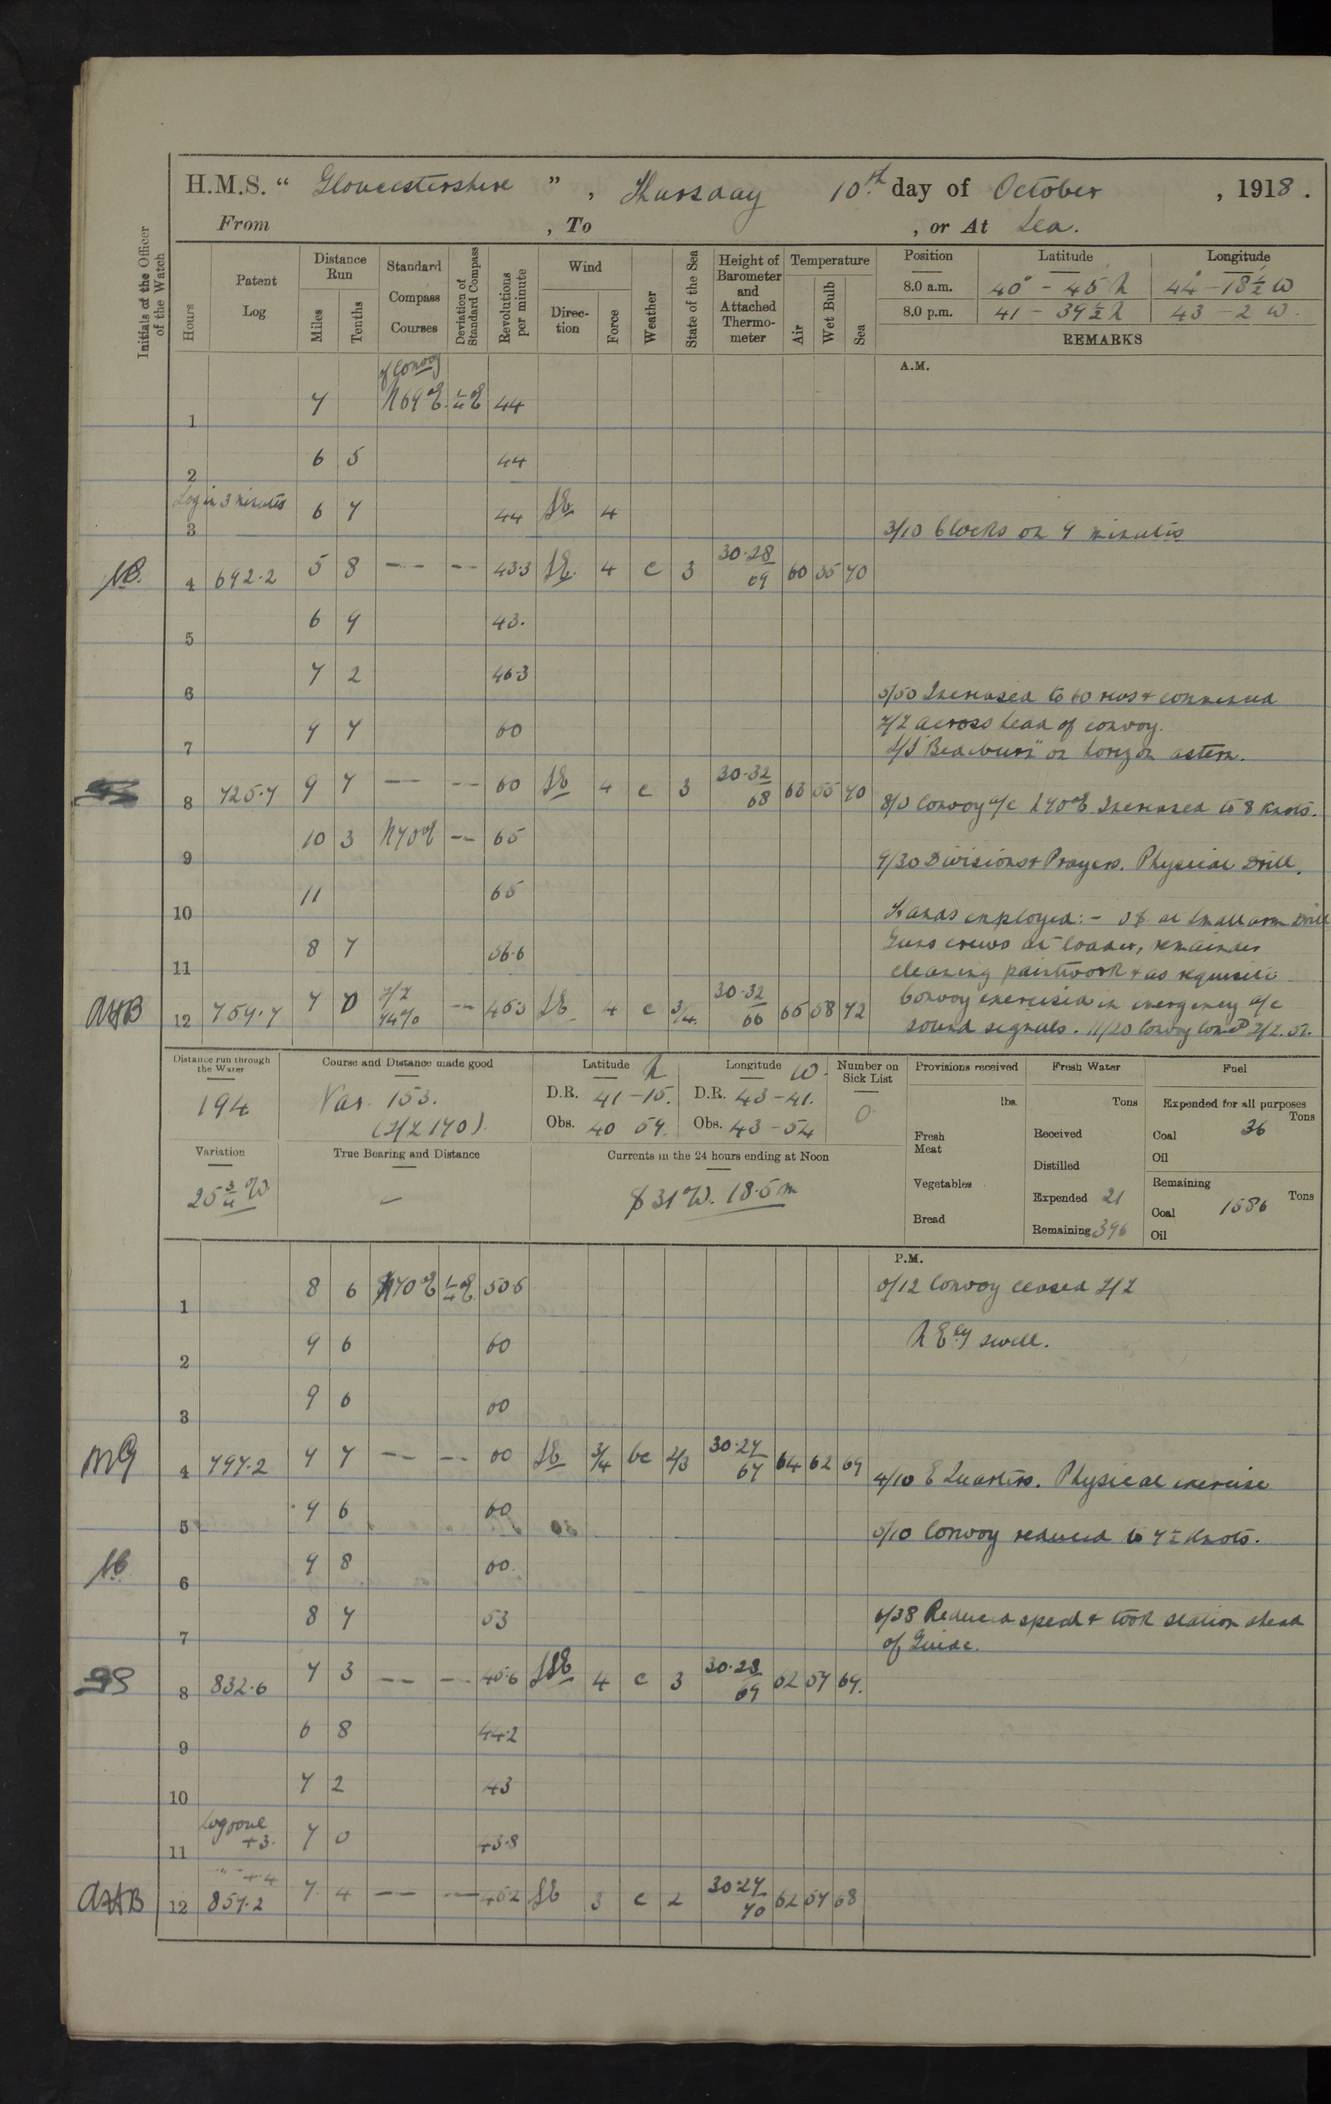 H.M.S. " Gloucestershire " , Thursday 10th day of October , 1918 .
From , To , or At Sea.
Initials of the Officer of the Watch
Hours
Patent Log
Distance Run
Miles
Tenths
Standard Compass Courses
Deviation of Standard Compass
Revolutions per minute
Wind
Direction
Force
Weather
State of the Sea
Height of Barometer and Attached Thermometer
Temperature
Air
Wet Bulb
Sea
Position Latitude Longitude
8.0 a.m. 40° - 45 N 44° - 18½ W
8.0 p.m. 41 - 39½ N 43 - 2 W.
REMARKS
A.M.
of Convoy
1 7 N69°E ¼°E 44
2 6 5 44
Log in 3 minutes
3 6 7 44 SE 4
3/10 Clocks on 9 minutes
4 692.2 5 8 -- -- 43.3 SE 4 c 3 30.28/69 60 55 70
5 6 9 43.
6 7 2 46.3
5/50 Increased to 60 revs & commenced
7 9 7 60
Z/Z across head of convoy.
S/S "Beaverburn" on horizon astern.
8 725.7 9 7 -- -- 60 SE 4 c 3 30.32/68 63 55 70
8/0 Convoy a/c N70°E Increased to 8 knots.
9 10 3 N70°E -- 65
9/30 Divisions & Prayers. Physical Drill.
10 11 65
Hands employed:- at Small arm Drill
11 8 7 56.6
Guns crews at loader, remainder
cleaning paintwork & as requisite
AHB 12 759.7 7 0 Z/Z -- 45.3 SE 4 c 3/4 30.32/66 65 58 72
Convoy exercised in emergency a/c
sound signals. 11/20 Convoy Comced Z/Z.
Distance run through the Water
194
Course and Distance made good
Var. 153.
(Z/Z 170).
Latitude N
D.R. 41 - 15.
Obs. 40 59.
Longitude W.
D.R. 43 - 41.
Obs. 43 - 54
Number on Sick List
0
Provisions received
lbs.
Fresh Meat
Vegetables
Bread
Fresh Water
Tons
Received
Distilled
Expended 21
Remaining 396
Fuel
Expended for all purposes
Tons
Coal 36
Oil
Remaining
Tons
Coal 1586
Oil
Variation
25¾°W.
True Bearing and Distance
—
Currents in the 24 hours ending at Noon
S 31°W. 18.5 m
P.M.
1 8 6 N70°E ¼°E 50.6
0/12 Convoy ceased Z/Z
2 9 6 60
N Ely swell.
3 9 6 60
MG 4 797.2 9 7 -- -- 60 SE 3/4 bc 2/3 30.27/67 64 62 69
4/10 E Quarters. Physical exercise
5 9 6 60
5/10 Convoy reduced to 7½ knots.
6 9 8 60.
7 8 7 53
6/38 Reduced speed & took station ahead
of Guide.
8 832.6 7 3 -- -- 45.6 SSE 4 c 3 30.28/69 62 57 69.
9 6 8 44.2
10 7 2 43
11 7 0 43.8
+3.
" " +4
AHB 12 857.2 7 4 -- -- 45.2 SE 3 c 2 30.27/70 62 57 68